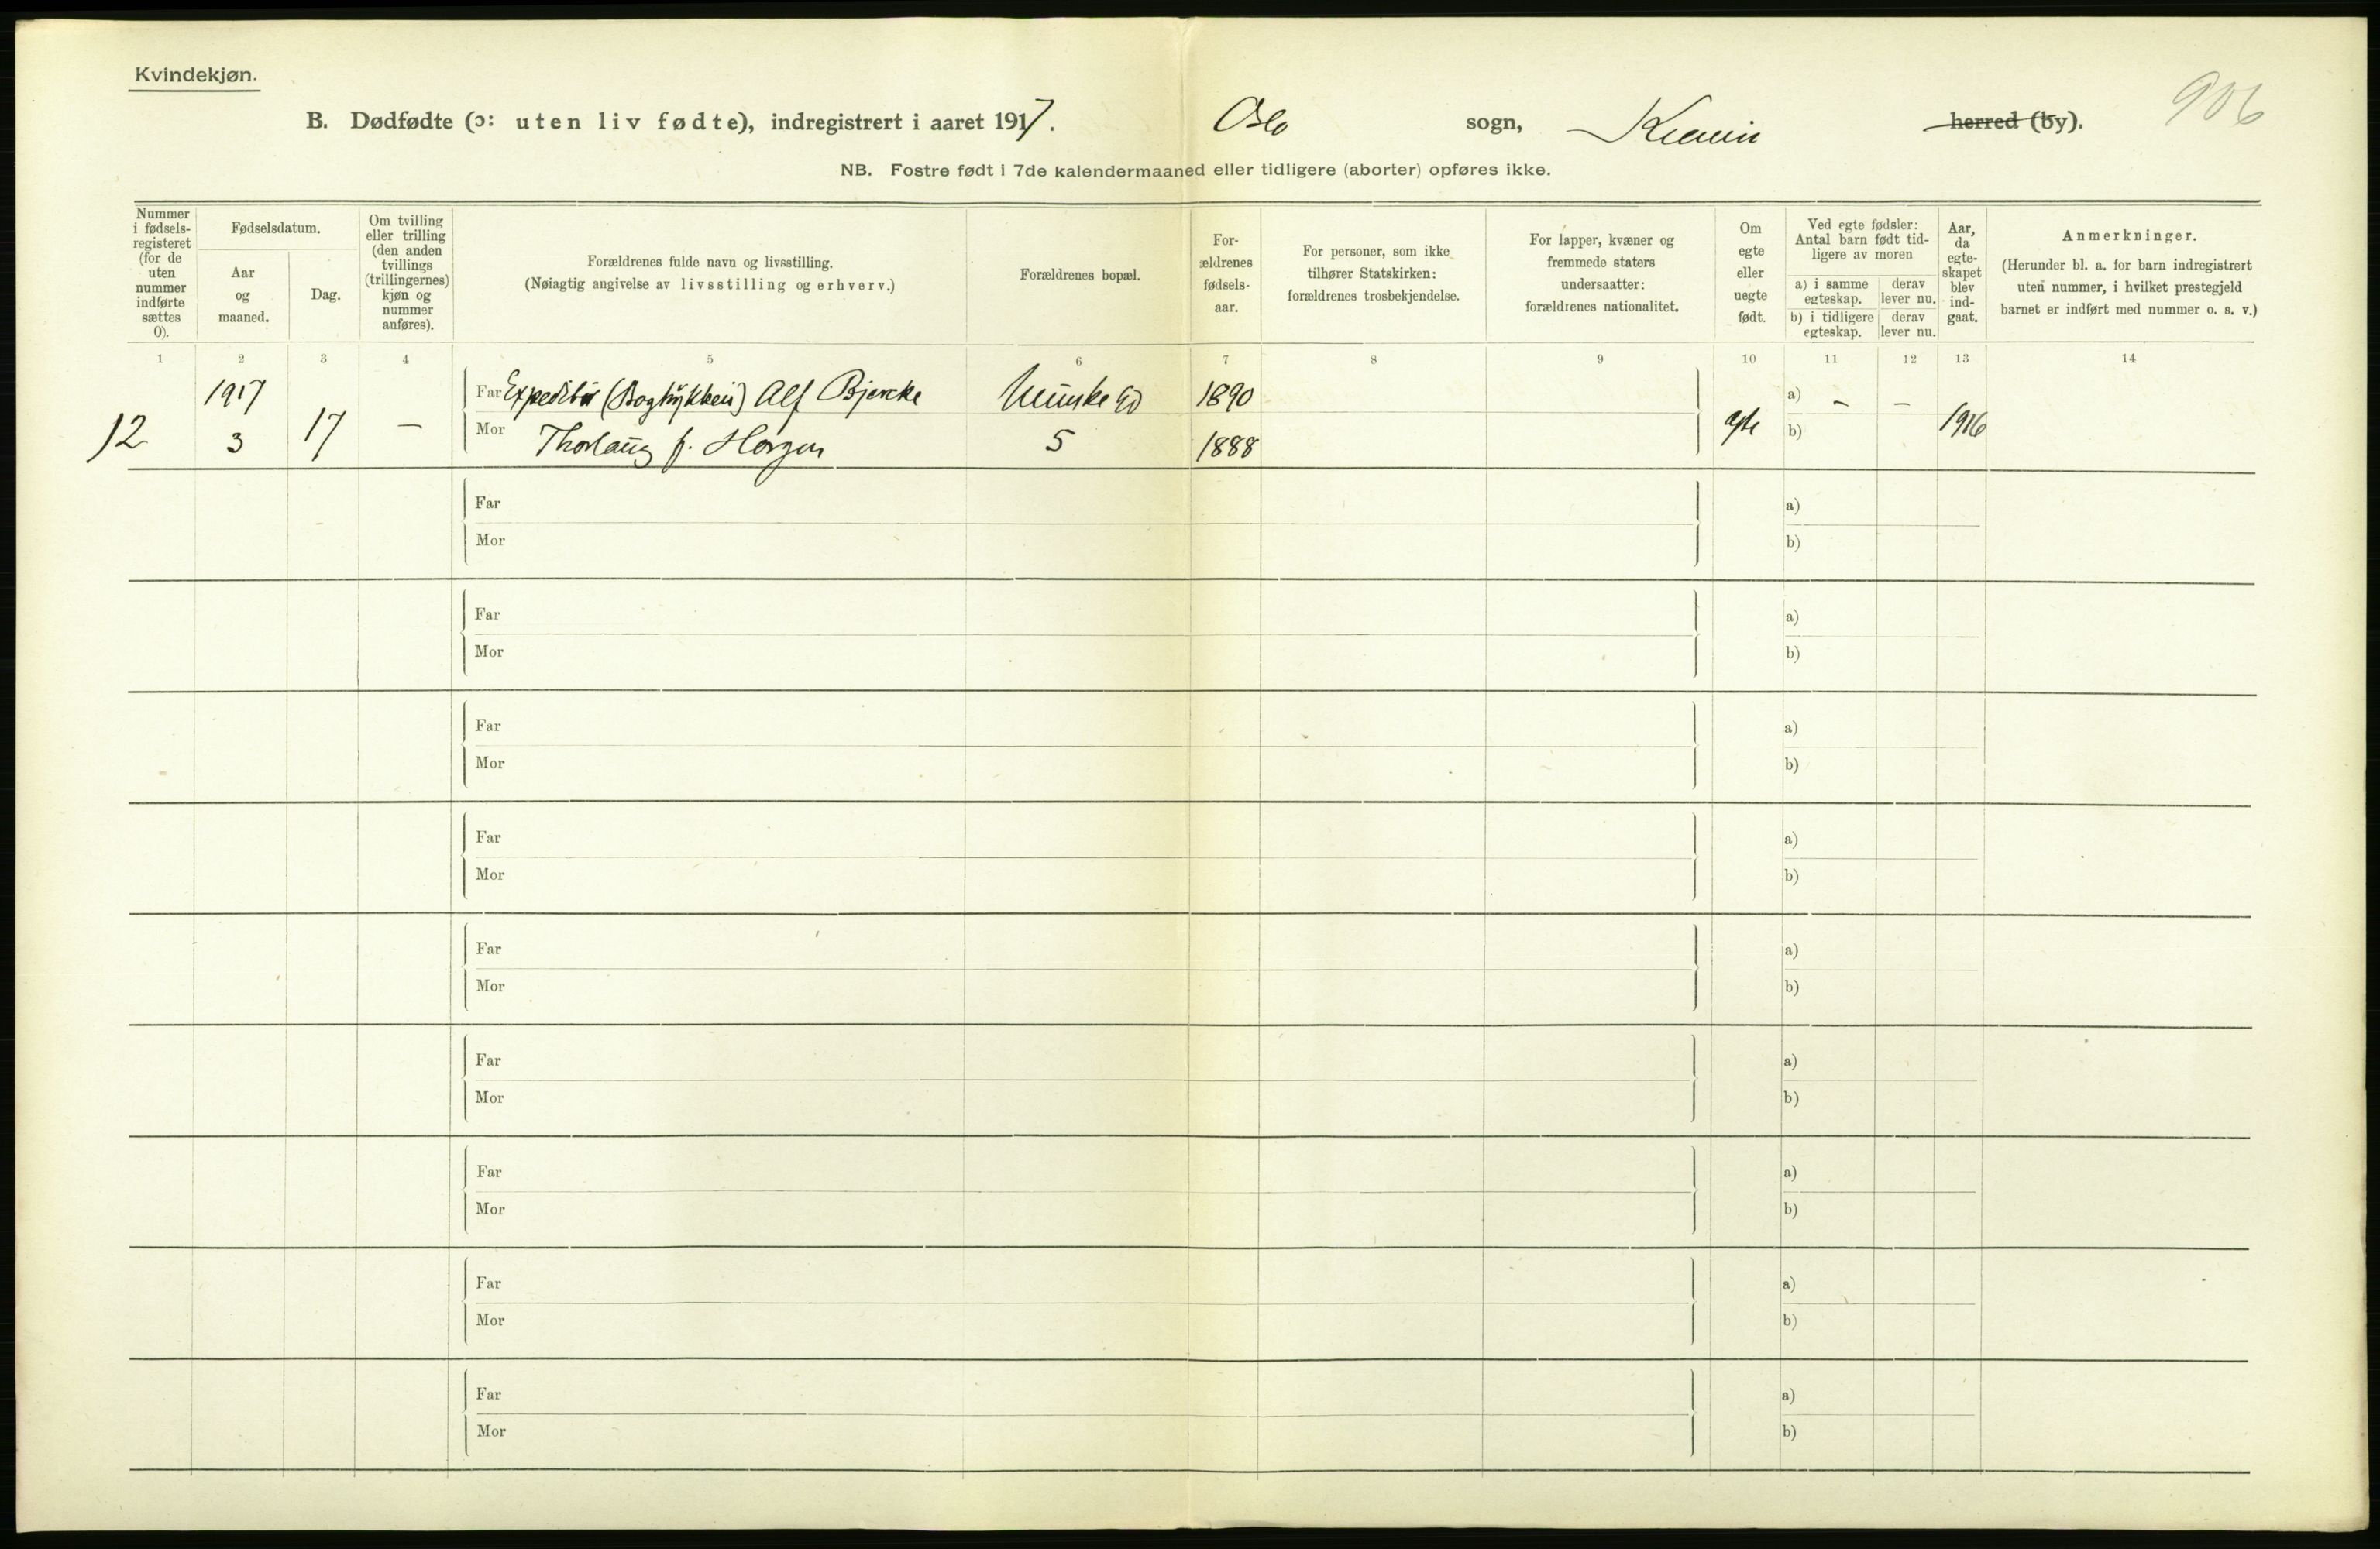 Kvindekjøn.
906
B. Dødfødte (ɔ: uten liv fødte), indregistrert i aaret 1917. Oslo sogn, herred (by).
NB. Fostre født i 7de kalendermaaned eller tidligere (aborter) opføres ikke.
Nummer
i fødsels-
registeret
(for de
uten
nummer
indførte
sættes
0).
Fødselsdatum.
Aar
og
maaned.
Dag.
Om tvilling
eller trilling
(den anden
tvillings
(trillingernes)
kjøn og
nummer
anføres).
Forældrenes fulde navn og livsstilling.
(Nøiagtig angivelse av livsstilling og erhverv.)
Forældrenes bopæl.
For-
ældrenes
fødsels-
aar.
For personer, som ikke
tilhører Statskirken:
forældrenes trosbekjendelse.
For lapper, kvæner og
fremmede staters
undersaatter:
forældrenes nationalitet.
Om
egte
eller
uegte
født.
Ved egte fødsler:
Antal barn født tid-
ligere av moren
a) i samme
egteskap.
derav
lever nu.
b) i tidligere
egteskap.
derav
lever nu.
Aar,
da
egte-
skapet
blev
ind-
gaat.
Anmerkninger.
(Herunder bl. a. for barn indregistrert
uten nummer, i hvilket prestegjeld
barnet er indført med nummer o. s. v.)
1 2 3 4 5 6 7 8 9 10 11 12 13 14
1917 Far Alf Bjercke 1890 a) – –
12 3 17 – Mor Thorlaug f. Horgen 5 1888 egte b) 1916
Far a)
Mor b)
Far a)
Mor b)
Far a)
Mor b)
Far a)
Mor b)
Far a)
Mor b)
Far a)
Mor b)
Far a)
Mor b)
Far a)
Mor b)
Far a)
Mor b)